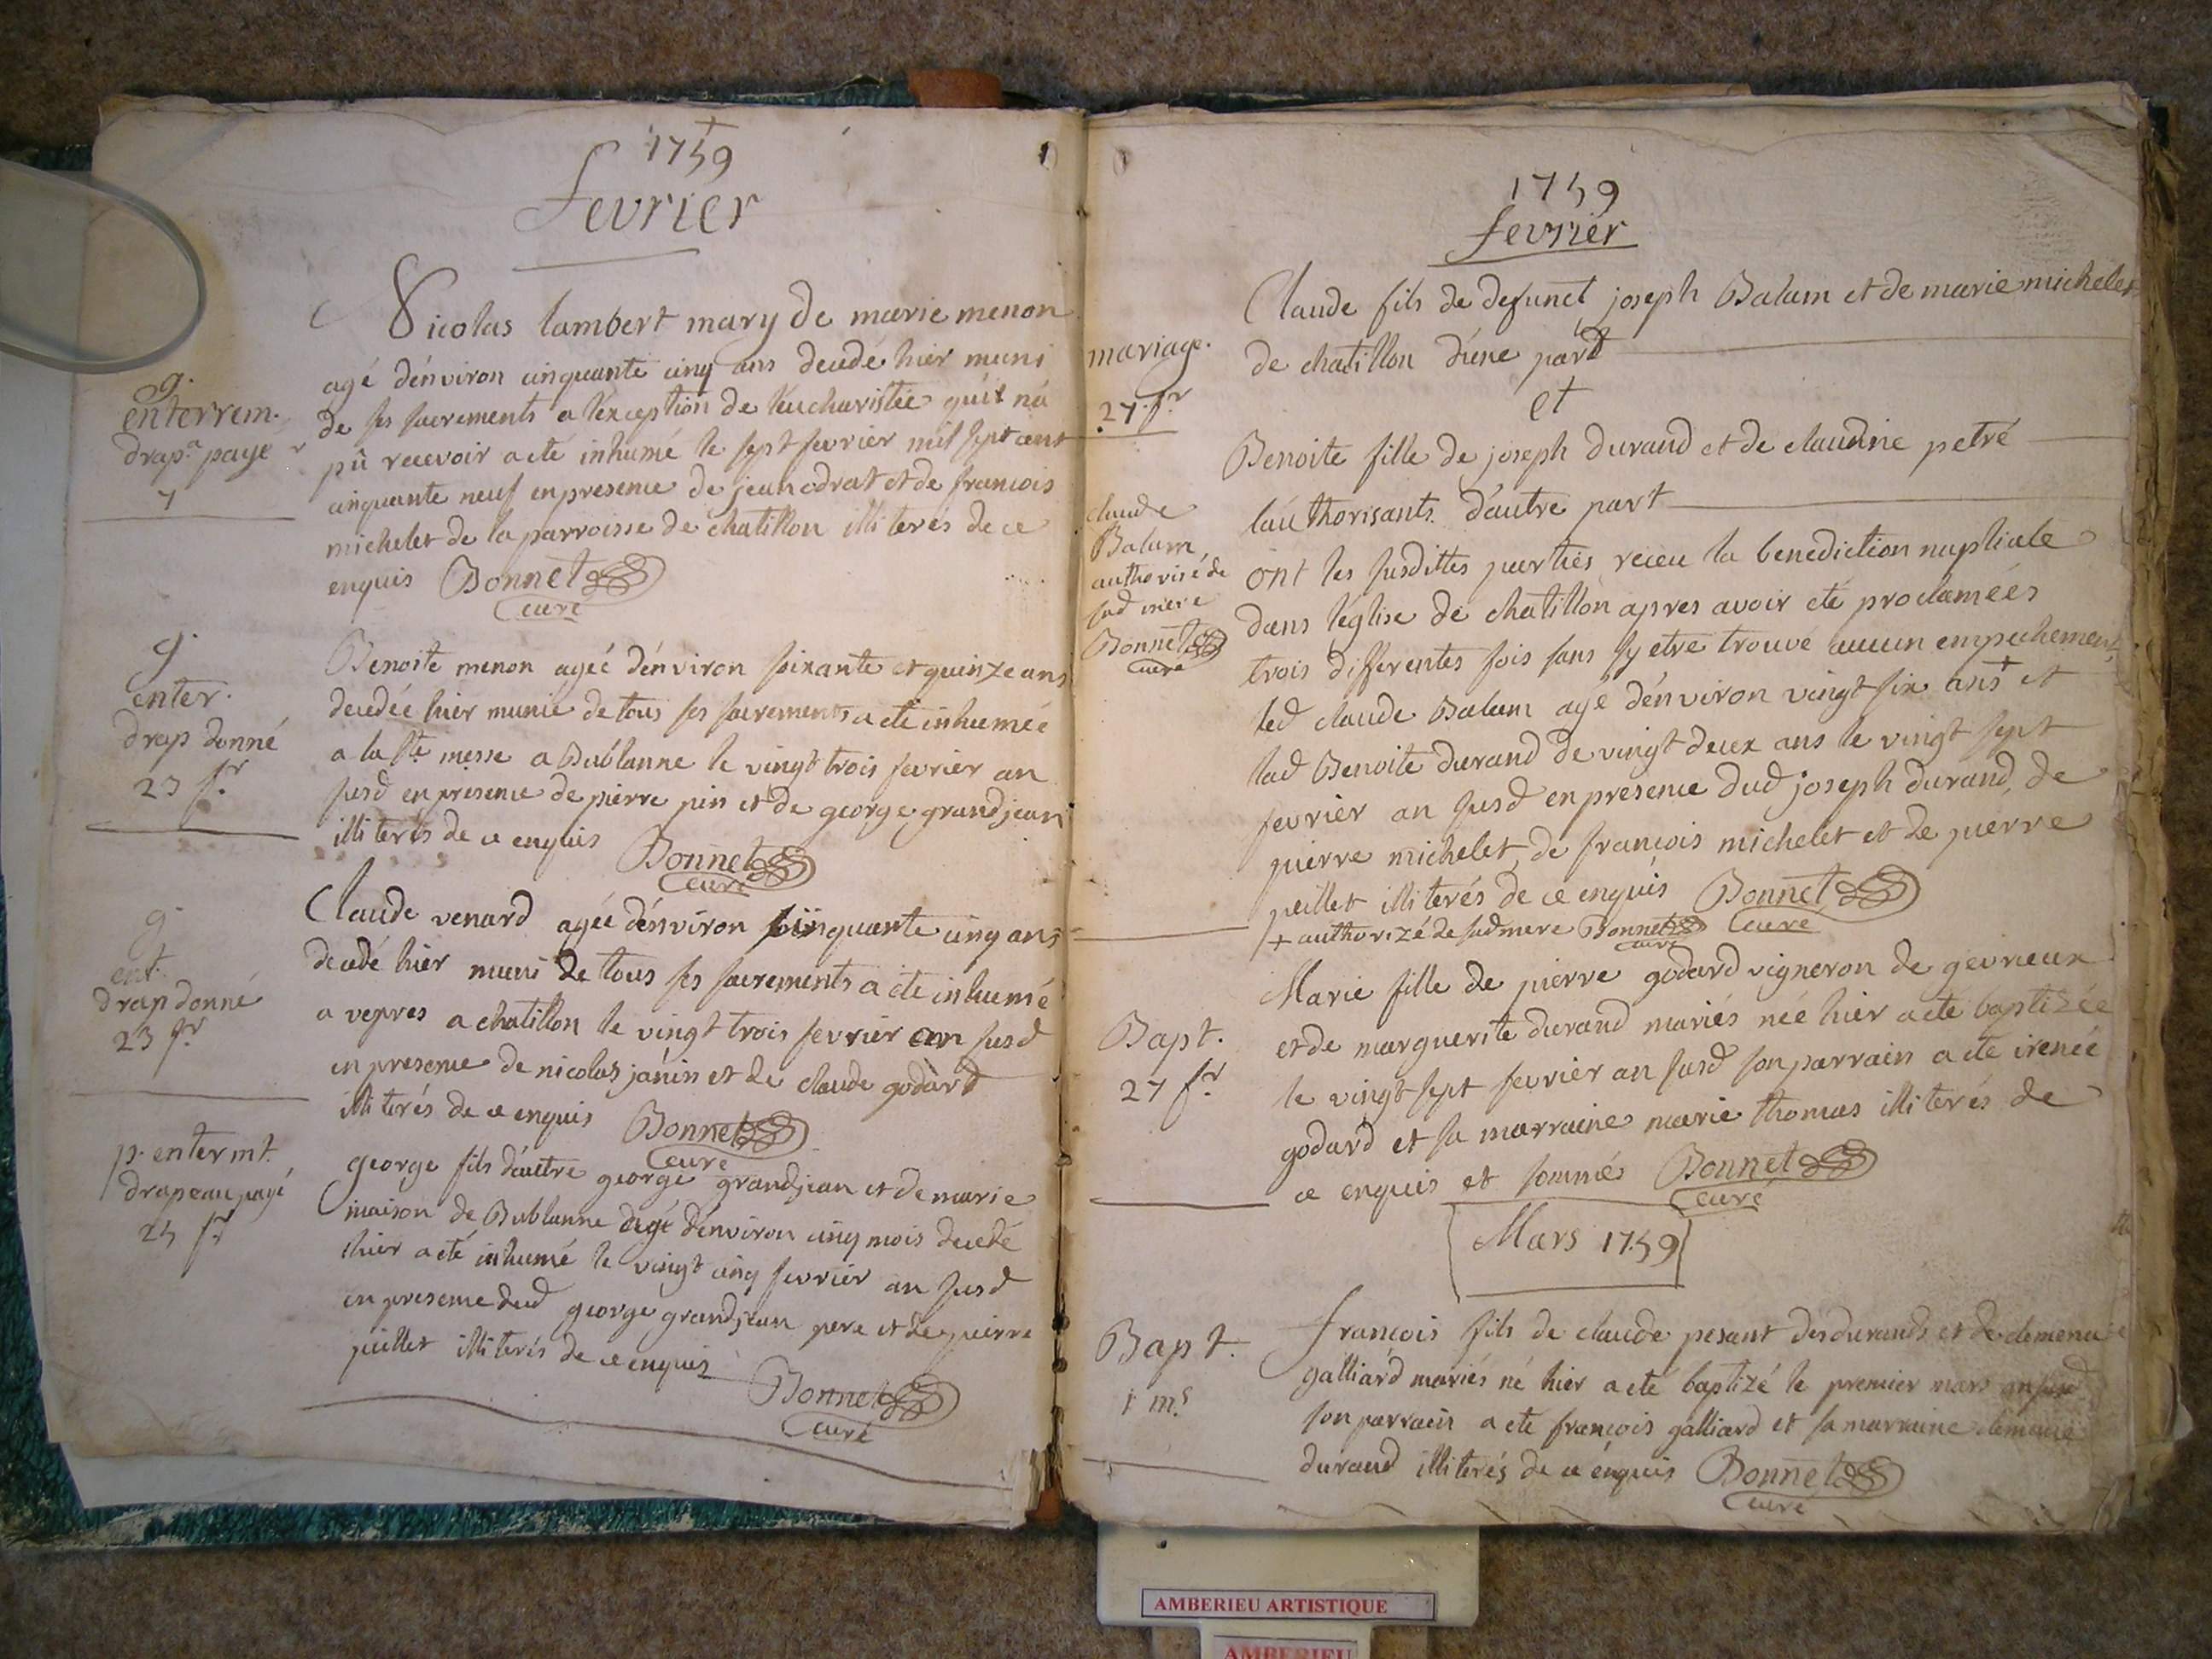 1759
fevrier
Nicolas lambert mary de marie menon
agé dénviron cinquante cinq ans decedé hier muni
de ses sacrements a léxception de léucharistie quil ná
pû recevoir a eté inhumé le sept fevrier mil sept cent
cinquante neuf en presence de jean odrat et de francois
michelet de la parroisse de chatillon illiterés de ce
enquis Bonnet
curé
g.
enterrem.
drap. payé
7
Benoite menon ageé dénviron soixante et quinze ans
decedée hier munie de tous ses sacrements a eté inhumeé
a la ste messe a Bublanne le vingt trois fevrier an
susd en presence de pierre pin et de george grandjean
illiterés de ce enquis Bonnet
curé
g.
enter.
drap donné
23 fr
Claude venard ageé dénviron cinquante cinq ans
decedé hier muni de tous ses sacrements a eté inhumé
a vepres a chatillon le vingt trois fevrier an susd
en presence de nicolas jánin et de claude godard
illiterés de ce enquis Bonnet
curé
g.
ent.
drap donné
23 fr
george fils dáutre george grandjean et de marie
maison de Bublanne agé dénviron cinq mois decedé
hier a eté inhumé le vingt cinq fevrier an susd
en presence dud george grandjean pere et de pierre
peillet illiterés de ce enquis
Bonnet
curé
p. entermt.
drapeau payé
25 fr
1759
fevrier
Claude fils de defunct joseph Balum et de marie michelet
de chatillon dúne part
et
Benoite fille de joseph durand et de claudine petré
láuthorisants dáutre part
ont les susdittes parties receu la benediction nuptiale
dans léglise de chatillon apres avoir eté proclamées
trois differentes fois sans sy etre trouvé aucun empechement
led claude Balum agé dénviron vingt six ans + et
lad Benoite durand de vingt deux ans le vingt sept
fevrier an susd en presence dud joseph durand, de
pierre michelet, de francois michelet et de pierre
peillet illiterés de ce enquis Bonnet
curé
+ authorizé de sad mere Bonnet
curé
mariage.
27 fr
claude
Balum,
authorisé de
sad mere
Bonnet
curé
Marie fille de pierre godard vigneron de gevrieux
et de marguerite durand mariés neé hier a eté baptizée
le vingt sept fevrier an susd son parrain a eté ireneé
godard et sa marraine marie thomas illiterés de
ce enquis et sommés Bonnet
curé
Bapt.
27 fr
Mars 1759
francois fils de claude pesant des durands et de clemence
galliard mariés né hier a eté baptizé le premier mars an susd
son parrain a eté françois galliard et sa marraine clemence
durand illiterés de ce enquis Bonnet
curé
Bapt.
1 ms
AMBERIEU ARTISTIQUE
AMBERIEU